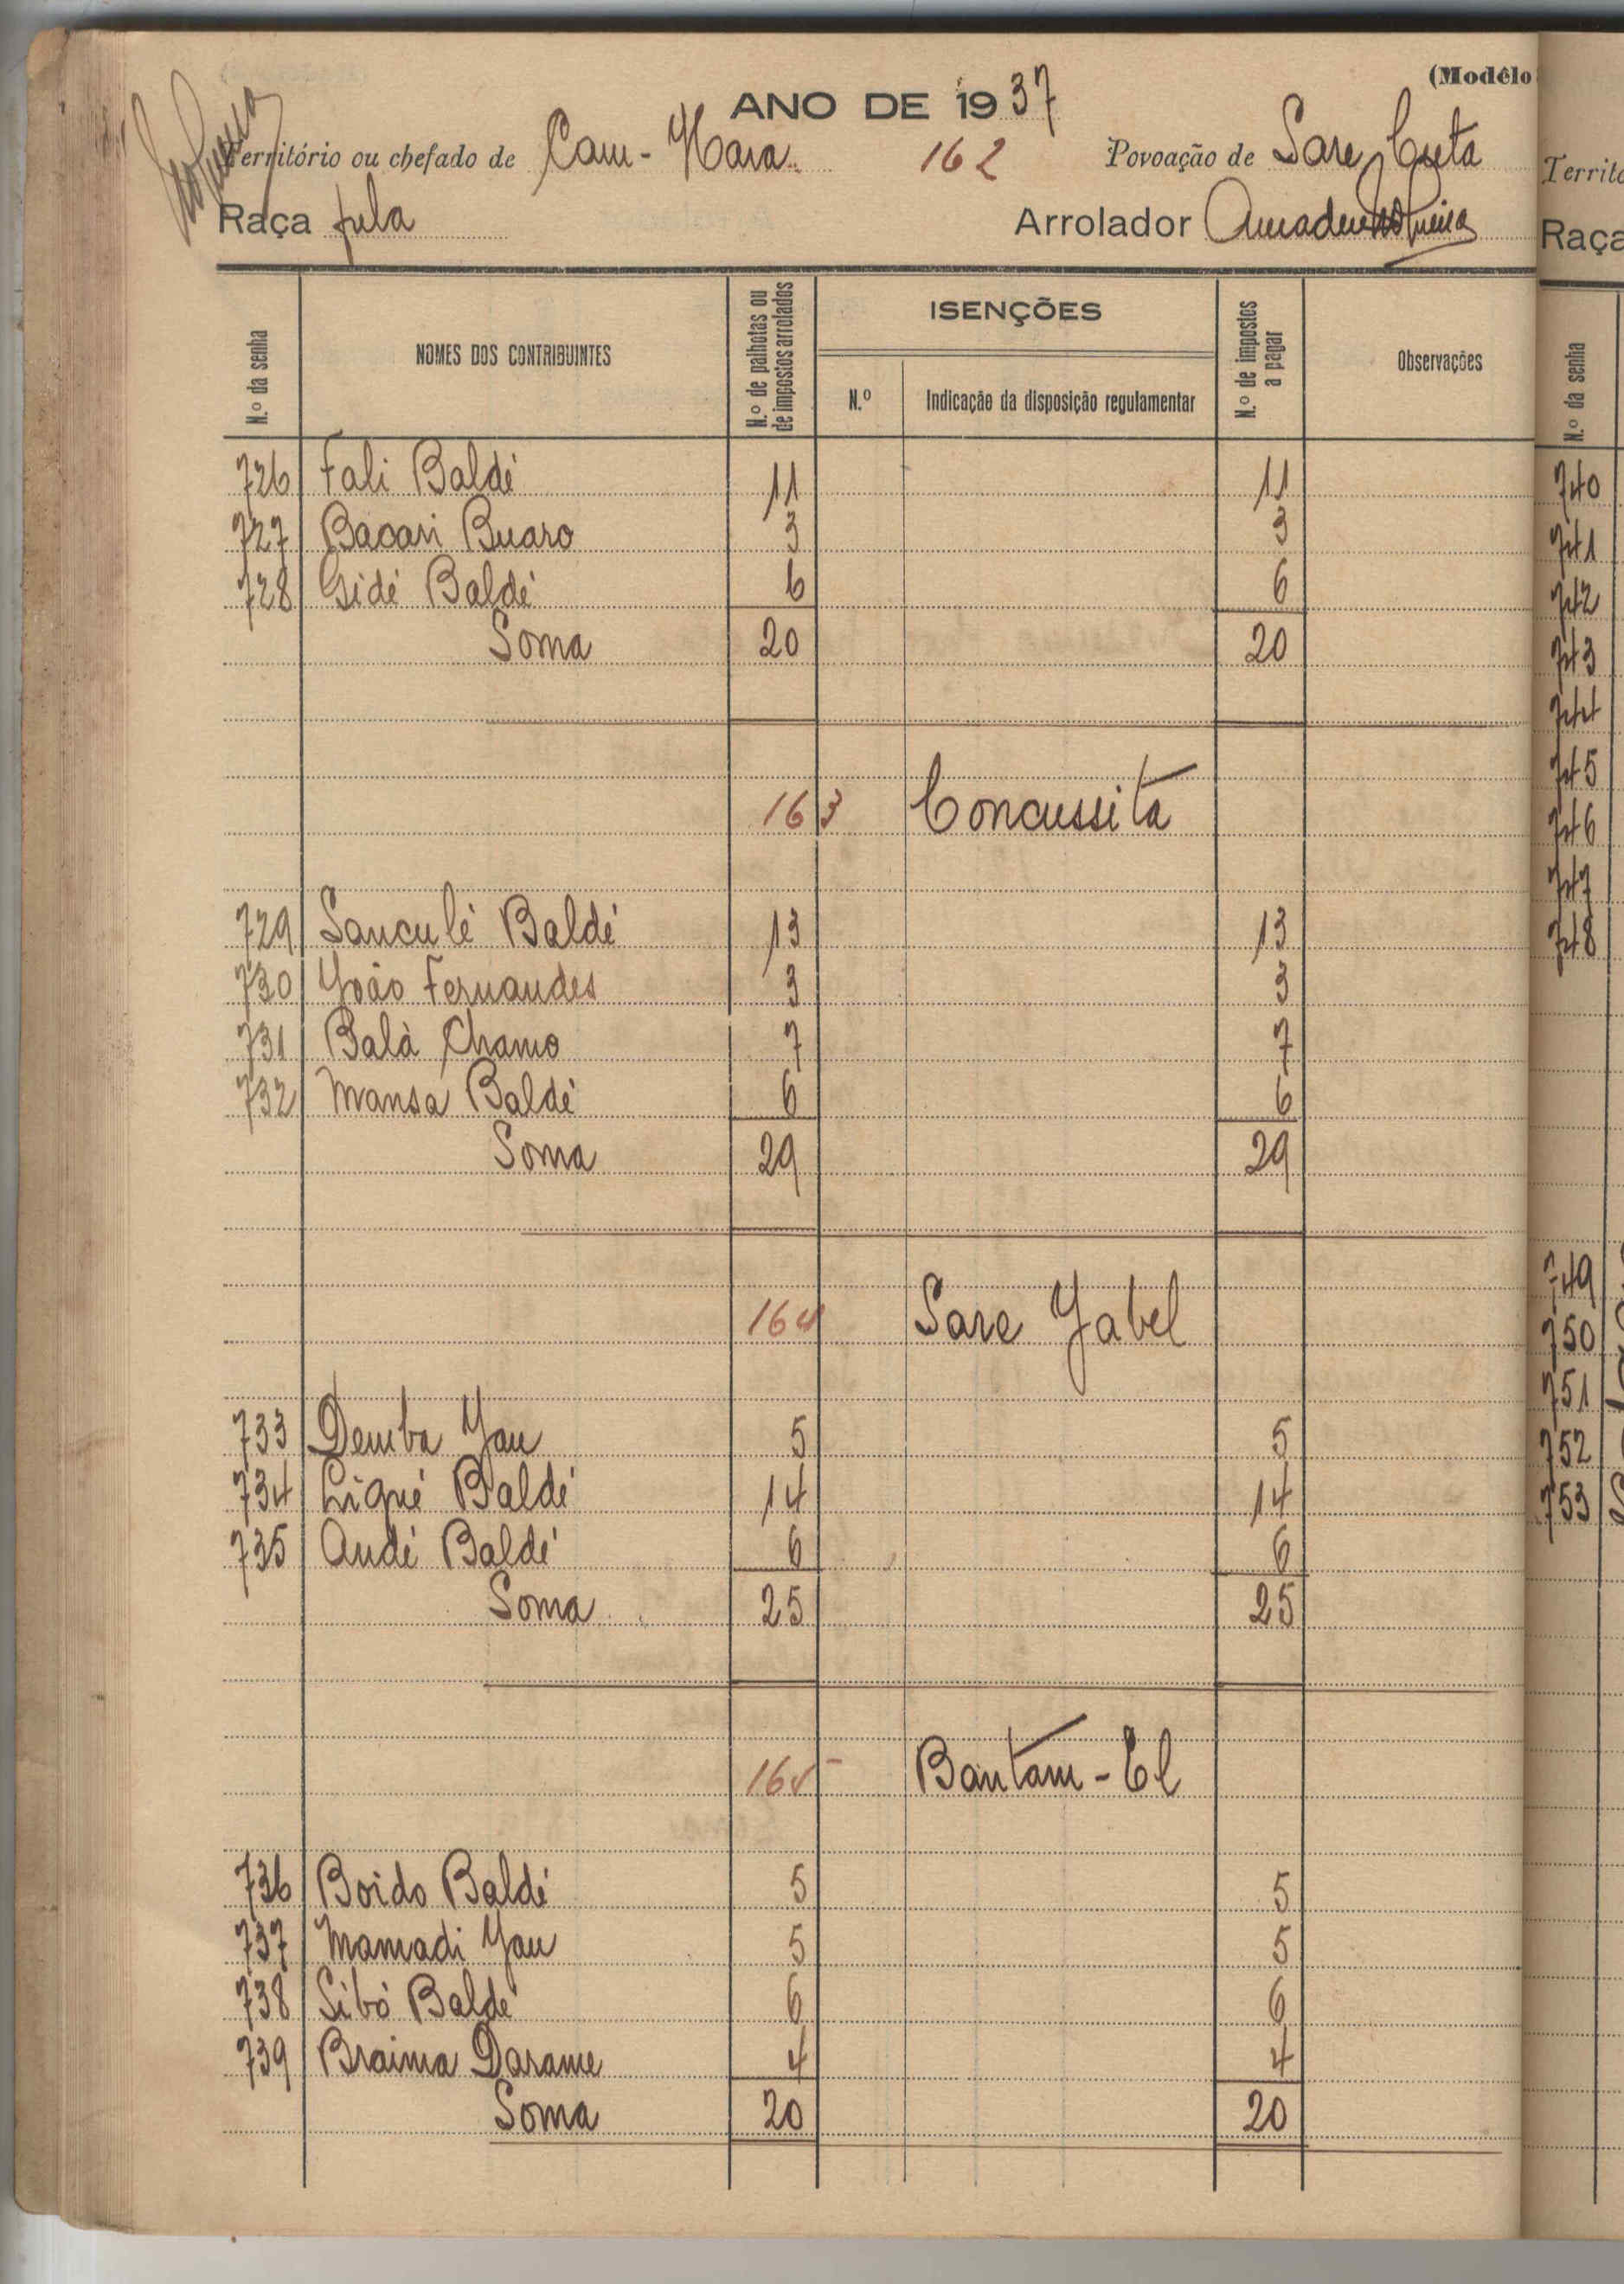 (Modêlo
ANO DE 1937
Território ou chefado de Cam-Hara 162 Povoação de Sare Cuta
Raça fula Arrolador Amadeu Nogueira
N.º da senha NOMES DOS CONTRIBUINTES N.º de palhotas ou de impostos arrolados ISENÇÕES N.º Indicação da disposição regulamentar N.º de impostos a pagar Observações
726 Fali Baldé 11 11
727 Bacari Buaro 3 3
728 Gidé Baldé 6 6
Soma 20 20
163 Concussita
729 Sanculé Baldé 13 13
730 João Fernandes 3 3
731 Balà Chamo 7 7
732 Mansa Baldé 6 6
Soma 29 29
164 Sare Yabel
733 Demba Jau 5 5
734 Liqué Baldé 14 14
735 Audé Baldé 6 6
Soma 25 25
165 Bantam-El
736 Boido Baldé 5 5
737 Mamadi Jau 5 5
738 Sibó Baldé 6 6
739 Braima Darame 4 4
Soma 20 20
Territo
Raça
N.º da senha
740
741
742
743
744
745
746
747
748
749
750
751
752
753